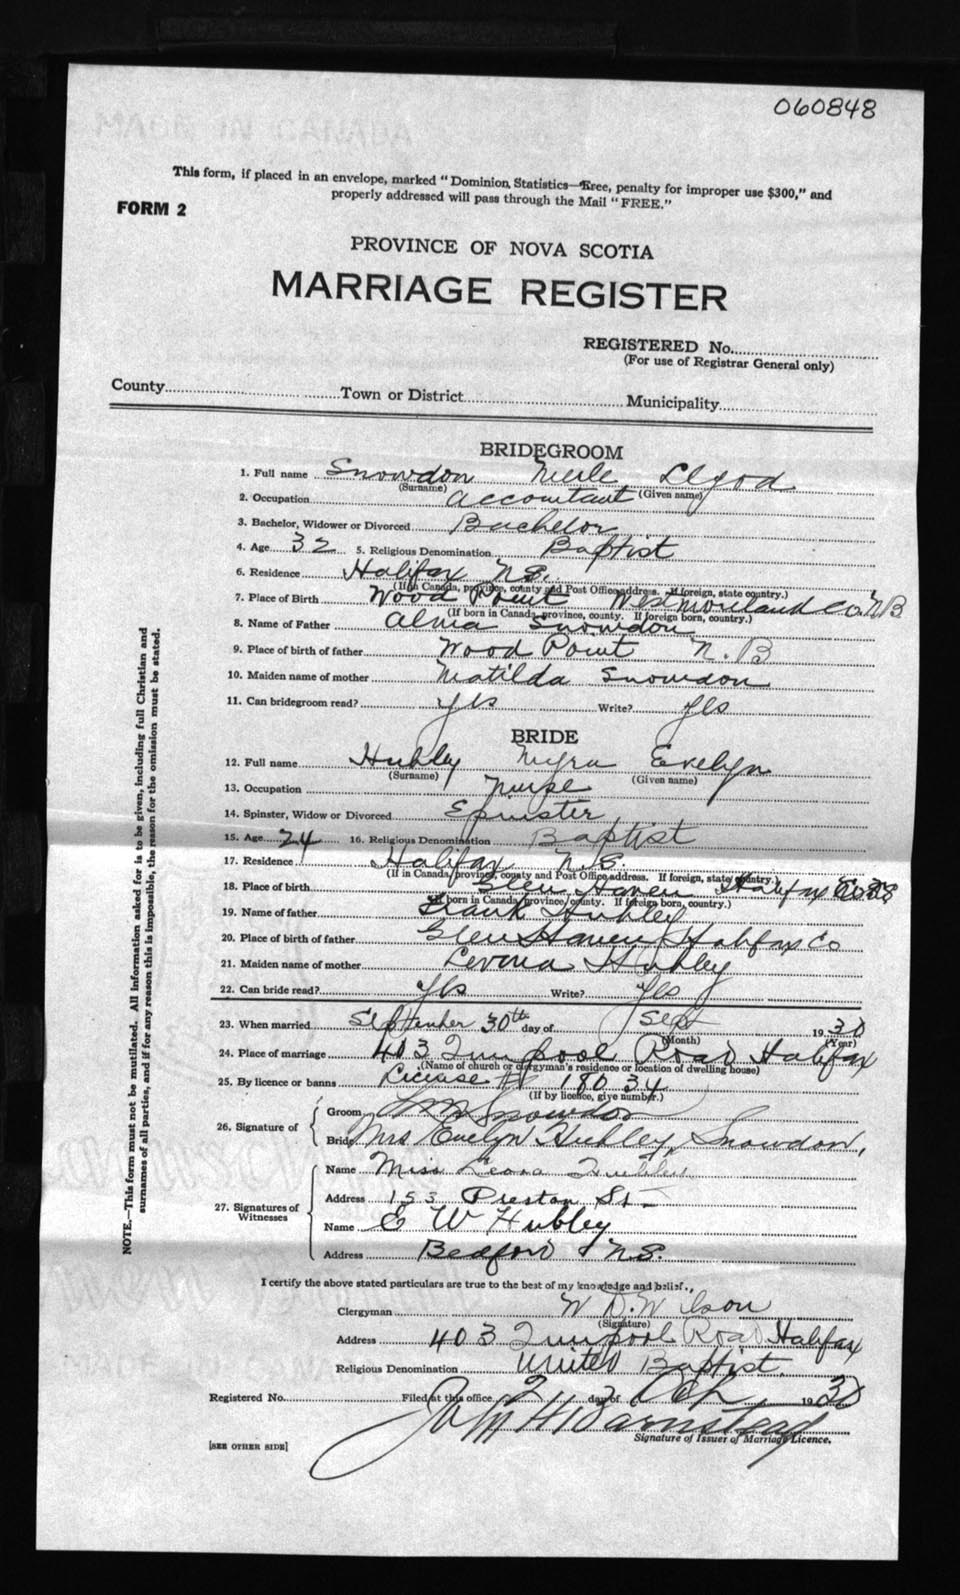 060848
This form, if placed in an envelope, marked "Dominion Statistics—Free, penalty for improper use $300," and
properly addressed will pass through the Mail "FREE."
FORM 2
PROVINCE OF NOVA SCOTIA
MARRIAGE REGISTER
REGISTERED No.
(For use of Registrar General only)
County Town or District Municipality
BRIDEGROOM
1. Full name Snowdon Merle Llyod
(Surname) (Given name)
2. Occupation accountant
3. Bachelor, Widower or Divorced Bachelor
4. Age 32 5. Religious Denomination Baptist
6. Residence Halifax N.S.
(If in Canada, province, county and Post Office address. If foreign, state country.)
7. Place of Birth Wood Point Westmoreland Co. N B
(If born in Canada, province, county. If foreign born, country.)
8. Name of Father Alma Snowdon
9. Place of birth of father Wood Point N. B
10. Maiden name of mother Matilda Snowdon
11. Can bridegroom read? yes Write? yes
BRIDE
12. Full name Hubley Myra Evelyn
(Surname) (Given name)
13. Occupation Nurse
14. Spinster, Widow or Divorced Spinster
15. Age 24 16. Religious Denomination Baptist
17. Residence Halifax N.S.
(If in Canada, province, county and Post Office address. If foreign, state country.)
18. Place of birth Glen Haven Halifax Co. N.S
(If born in Canada, province, county. If foreign born, country.)
19. Name of father Frank Hubley
20. Place of birth of father Glen Haven Halifax Co
21. Maiden name of mother Hubley
22. Can bride read? yes Write? yes
23. When married September 30th day of Sep 1930
(Month) (Year)
24. Place of marriage 403 Quinpool Road Halifax
(Name of church or clergyman's residence or location of dwelling house)
25. By licence or banns License # 18034
(If by licence, give number.)
26. Signature of
Groom Snowdon
Bride Mrs Evelyn Hubley Snowdon,
27. Signatures of Witnesses
Name Miss Leona Hubley
Address 153 Preston St
Name C W Hubley
Address Bedford N.S.
I certify the above stated particulars are true to the best of my knowledge and belief.
Clergyman W D. Wilson
(Signature)
Address 403 Quinpool Road Halifax
Religious Denomination United Baptist
Registered No. Filed at this office 2 day of Oct 1930
John H Barnstead
Signature of Issuer of Marriage Licence.
[SEE OTHER SIDE]
NOTE.—This form must not be mutilated. All information asked for is to be given, including full Christian and
surnames of all parties, and if for any reason this is impossible, the reason for the omission must be stated.